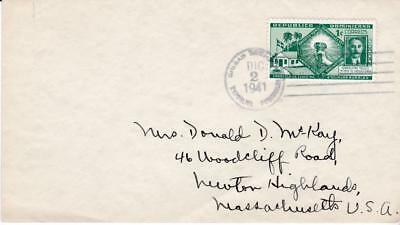 REPUBLICA DOMINICANA
1c
DIC
2
1941
Mrs. Donald D. McKay,
46 Woodcliff Road,
Newton Highlands,
Massachusetts U.S.A.